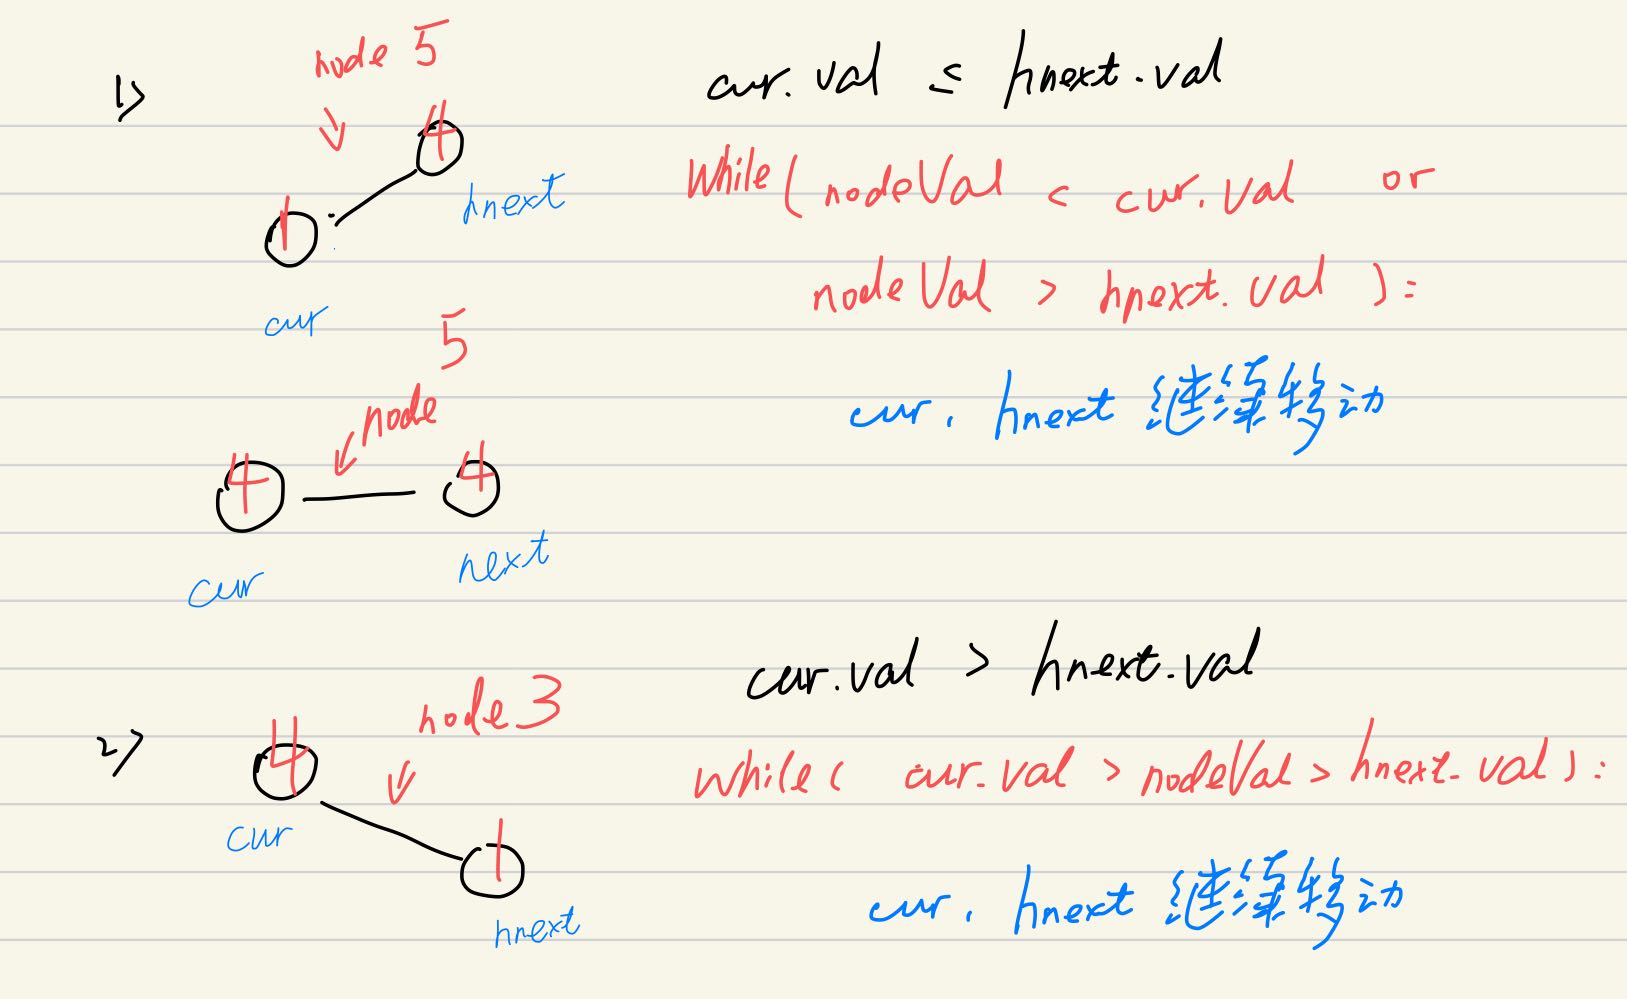 1>
node 5
4
hnext
1
cur
cur.val ≤ hnext.val
while( nodeVal < cur.val or
nodeVal > hnext.val ):
cur, hnext 继续移动
5
node
4
4
cur
next
2>
4
node 3
cur
1
hnext
cur.val > hnext.val
while( cur.val > nodeVal > hnext.val ):
cur, hnext 继续移动